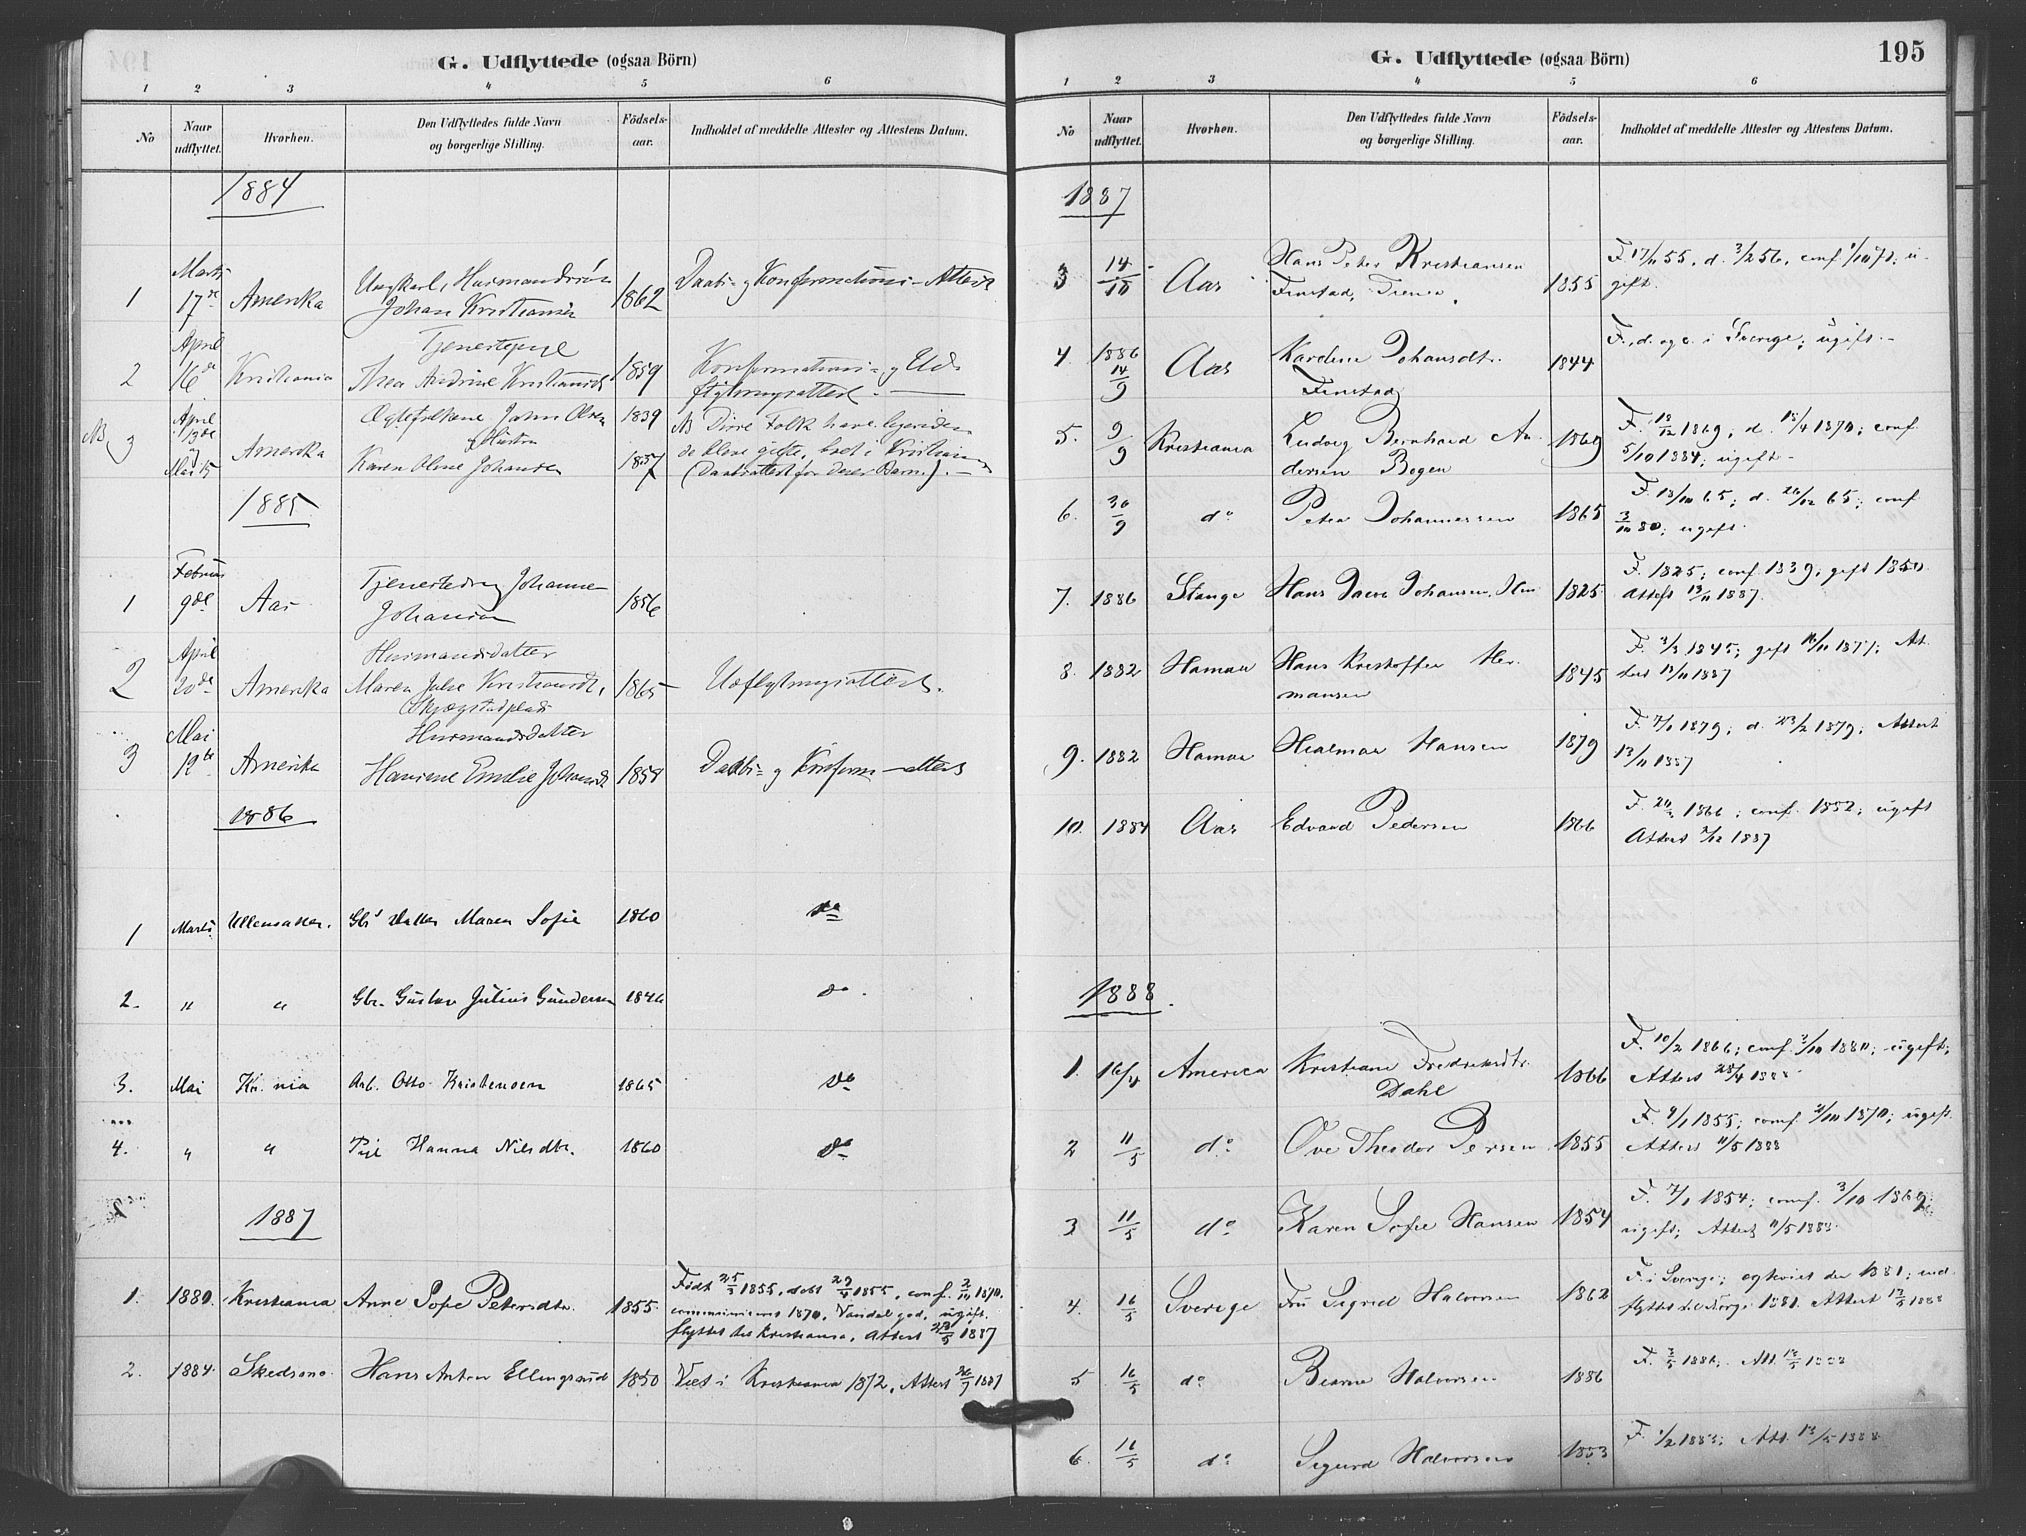 G. Udflyttede (ogsaa Börn)
1 2 3 4 5 6
No Naar udflyttet. Hvorhen. Den Udflyttedes fulde Navn og borgerlige Stilling. Födsels-aar. Indholdet af meddelte Attester og Attestens Datum.
1884
1 Marts 17de Amerika Ungkarl, Husmandssøn Johan Kristiansen 1862 Daabs- og Konfirmations-Attest
2 April 16de Kristiania Tjenestepige Thea Andrine Kristiansdt. 1859 Konfirmations- og Udflytningsattest.
NB 3 April 19de Amerika Ægtefolkene Johan Olsen 1839 NB Disse Folk have
Mai Karen Oline Johansen 1837 de bleve gifte, i Kristiania (Daabsattest for deres Børn).
1885
1 Februar 9de Aas Tjenestedreng Johannes Johansen 1856
2 April 20de Amerika Husmandsdatter Maren Julie Kristiansdt. 1865 Udflytningsattest.
3 Mai 12te Amerika Husmandsdatter Emilie Johansdt 1858 Daabs- og Konfirm-attest
1886
1 Marts Ullensaker. Gbr Datter Maren Sofie 1860 do
2. " " Gbr. Gustav Julius Gundersen 1846 do.
3. Mai Kr.nia Arb. Otto Kristensen 1865 do
4. " " Pige Hanna Nilsdtr. 1860 do
1887
1. 1880. Kristiania Anne Sofie Petersdtr. 1855. Født 25/3 1855, døbt 29/4 1855, conf. 2/10 1870. communiceret 1870, Vandel god, ugift. flyttet til Kristiania, Attest 23/5 1887
2. 1884. Skedsmo. Hans Anton Ellingsrud 1850 Viet i Kristiania 1872, Attest 26/7 1887
G. Udflyttede (ogsaa Börn) 195
1 2 3 4 5 6
No Naar udflyttet. Hvorhen. Den Udflyttedes fulde Navn og borgerlige Stilling. Födsels-aar. Indholdet af meddelte Attester og Attestens Datum.
1887
3 14/10 Aas Hans Peter Kristiansen Finstad, 1855 F. 17/11 55, d. 3/2 56, conf 1/10 71; ugift.
4 1886 14/9 Aas Karoline Johansdtr. Finstad 1844 F., d. og c. i Sverige; ugift.
5. 9/9 Kristiania Ludvig Bernhard Andersen Bogen 1869 F. 12/12 1869; d. 18/4 1870; conf. 5/10 1884; ugift
6. 30/9 do Peter Johannessen 1865 F. 13/10 65; d. 26/12 65; conf 3/10 80; ugift.
7. 1886 Stange Hans Johansen, 1825 F. 1825; conf 1839; gift 1850. Attest 13/11 1887.
8. 1882 Hamar Hans Kristoffer Hermansen 1845 F. 3/3 1845; gift 16/11 1877; Attest 13/11 1887
9. 1882 Hamar Hialmar Hansen 1879 F. 7/1 1879; d. 23/2 1879; Attest 13/11 1887
10. 1884 Aas Edvard Pedersen 1866 F. 1866; conf. 1882; ugift Attest 7/12 1887
1888.
1. 16/4 America Kristiane Fredriksdtr. Dahl 1866 F. 10/2 1866; conf. 3/10 1880; ugift; Attest 28/4 1888
2 11/5 do. Ove Theodor Persen 1855 F. 9/1 1855; conf. 2/10 1870; ugift. Attest 11/5 1888
3 11/5 do. Karen Sofie Hansen 1854 F. 7/1 1854; conf. 3/10 1869; ugift; Attest 11/5 1888.
4. 16/5 Sverige Fru Sigrid Halvorsen 1862 F. i Sverige; og viet der 1881; indflyttet til Norge 1881. Attest 13/5 1888
5 16/5 do. Bearne Halvorsen 1886 F. 3/5 1886; Att. 13/5 1888
6. 16/5 do. Sigurd Halvorsen 1883 F. 1/2 1883; Att. 13/5 1888